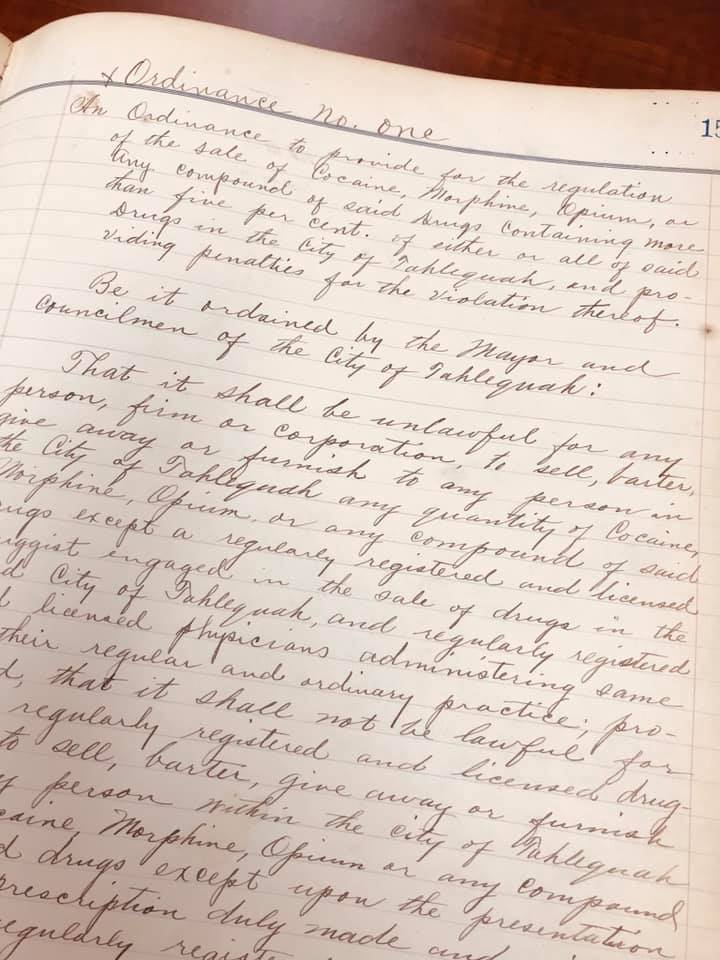 x Ordinance no. one
15
An Ordinance to provide for the regulation
of the sale of Cocaine, Morphine, Opium, or
any compound of said Drugs containing more
than five per cent. of either or all of said
Drugs in the City of Tahlequah, and pro-
viding penalties for the violation thereof.
Be it ordained by the Mayor and
councilmen of the City of Tahlequah:
That it shall be unlawful for any
person, firm or corporation, to sell, barter,
give away or furnish to any person in
the City of Tahlequah any quantity of Cocaine,
Morphine, Opium, or any compound of said
rugs except a regularly registered and licensed
uggist engaged in the sale of drugs in the
d City of Tahlequah, and regularly registered
l licensed physicians administering same
their regular and ordinary practice; pro-
d, that it shall not be lawful for
regularly registered and licensed drug-
to sell, barter, give away or furnish
y person within the city of Tahlequah
caine, Morphine, Opium or any compound
d drugs except upon the presentation
prescription duly made and
egularly